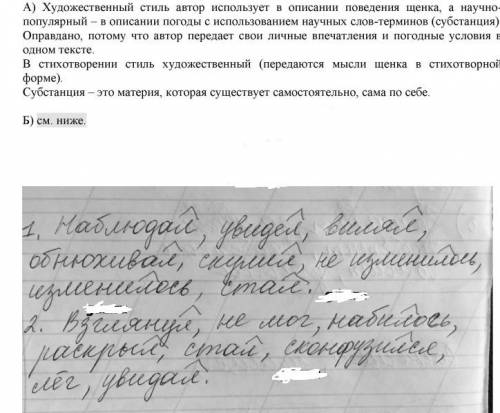 А) Художественный стиль автор использует в описании поведения щенка, а научно-
популярный – в описании погоды с использованием научных слов-терминов (субстанция)
Оправдано, потому что автор передает свои личные впечатления и погодные условия в
одном тексте.
В стихотворении стиль художественный (передаются мысли щенка в стихотворной
форме).
Субстанция – это материя, которая существует самостоятельно, сама по себе.
Б) см. ниже.
1. Наблюдал, увидел, вилял,
обнюхивал, скулил, не изменилось,
изменилось, стал.
2. Взглянул, не мог, набилось,
раскрыл, стал, сконфузился,
лёг, увидал.